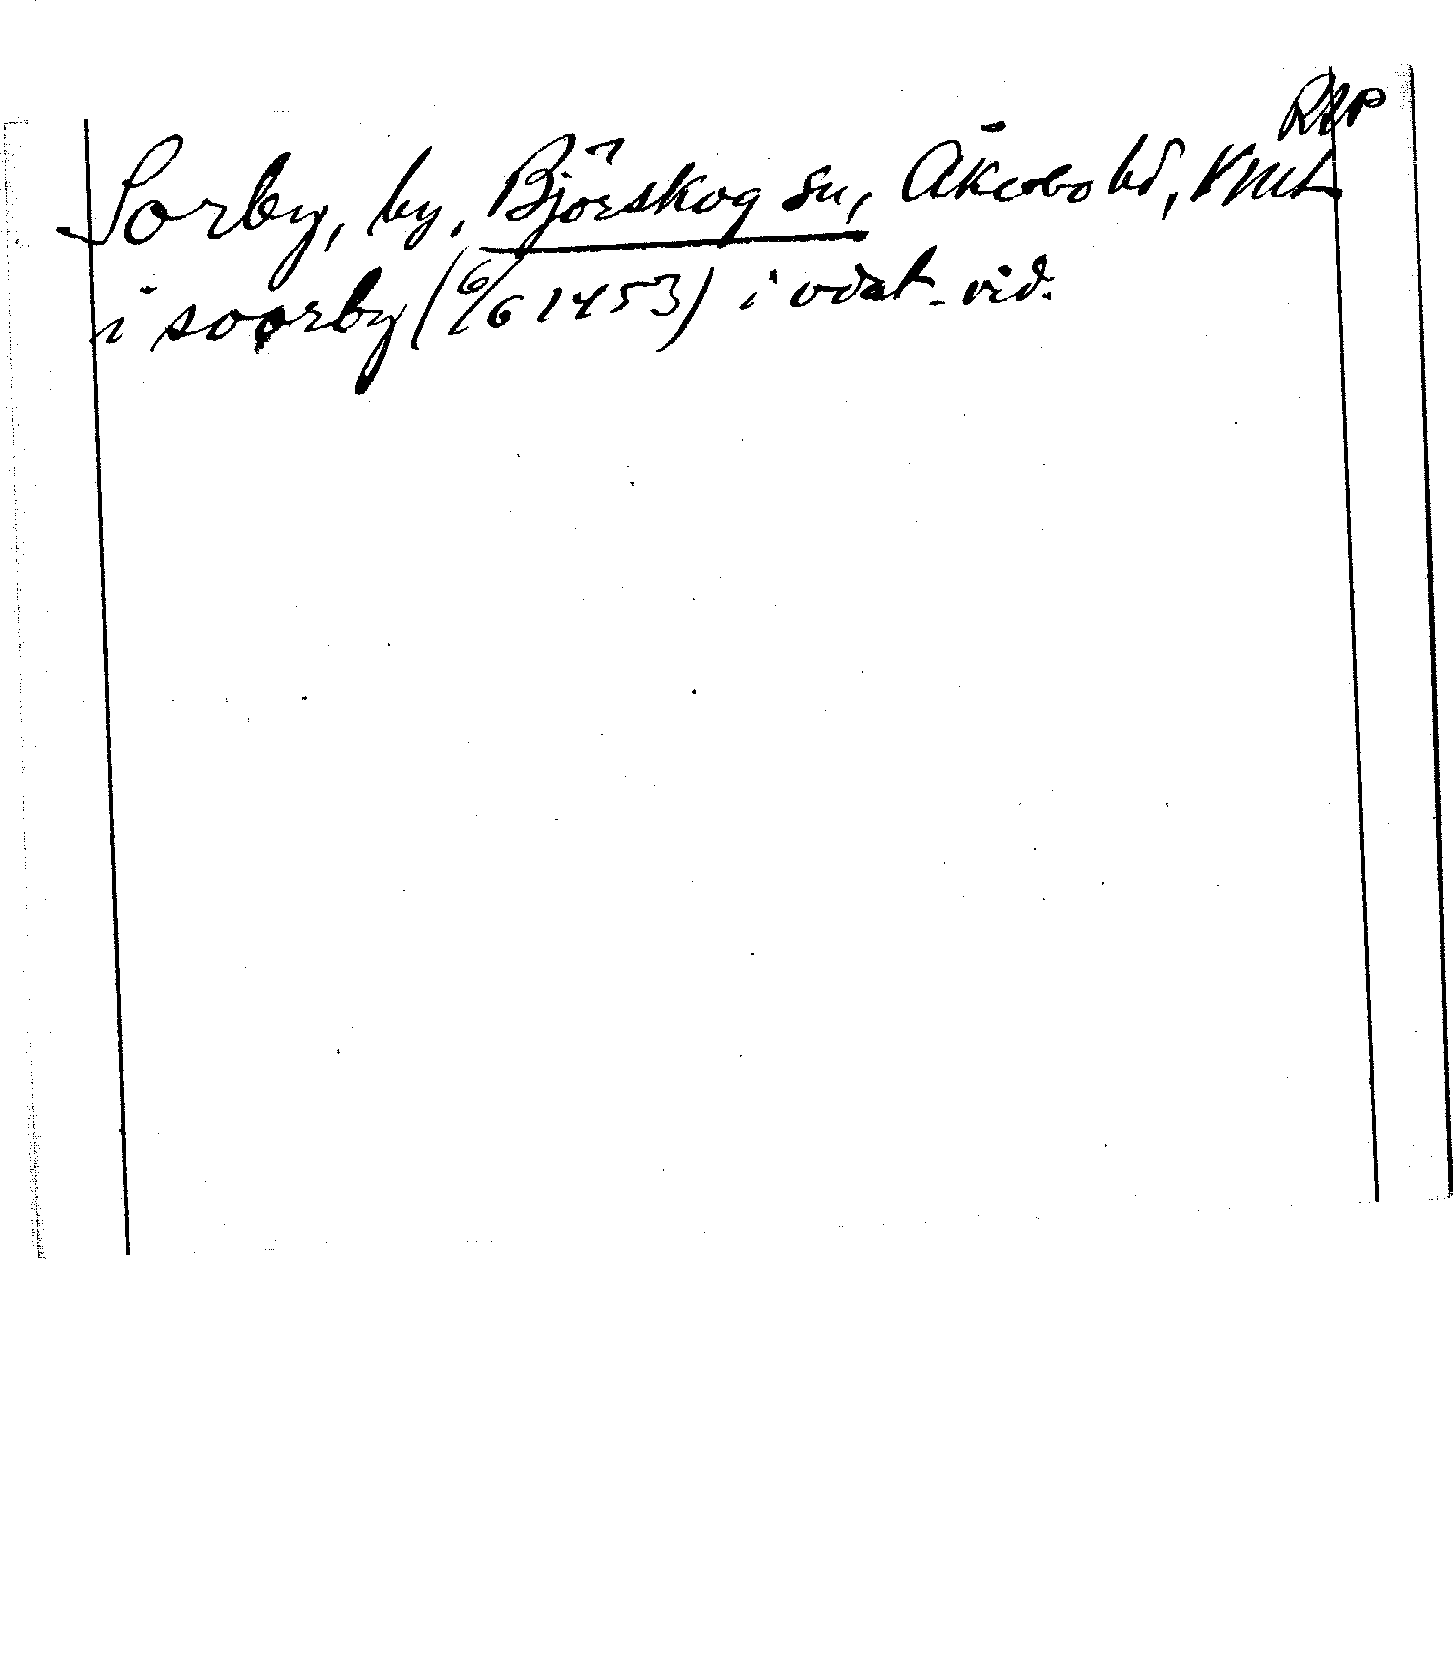 RAP
Sorby, by, Björskog sn, Åkerbo hd, Vmt
i soorby (6/6 1453) i odat. vid.